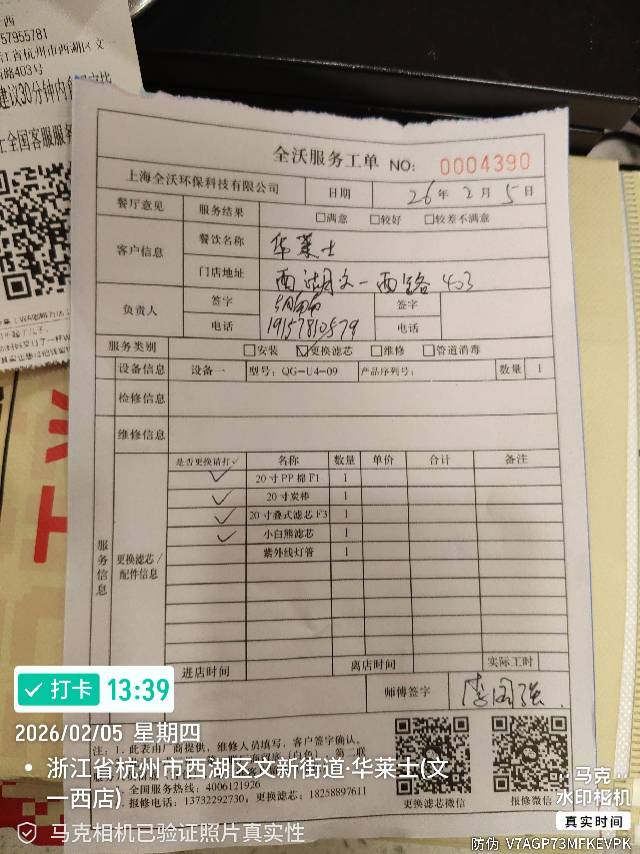 西
57955781
江省杭州市西湖区文
西路403号
建议30分钟内食用完毕
士全国客服服
全沃服务工单 NO: 0004390
上海全沃环保科技有限公司 日期 26年 2月 5日
餐厅意见 服务结果 □满意 □较好 □较差不满意
客户信息 餐饮名称 华莱士
门店地址 西湖文一西路 403
负责人 签字 签字
电话 19157810579 电话
服务类别 □安装 ☑更换滤芯 □维修 □管道消毒
设备信息 设备一 型号: QG-U4-09 产品序列号: 数量 1
检修信息
维修信息
服务信息 更换滤芯/配件信息
是否更换请打✓ 名称 数量 单价 合计 备注
✓ 20寸PP棉F1 1
✓ 20寸炭棒 1
✓ 20寸叠式滤芯F3 1
✓ 小白熊滤芯 1
紫外线灯管 1
进店时间 离店时间 实际工时
师傅签字 李国强
注: 1. 此表由厂商提供, 维修人员填写, 客户签字确认。
全国服务热线: 4006121926
报修电话: 13732292730; 更换滤芯: 18258897611
更换滤芯微信 报修微信
打卡 13:39
2026/02/05 星期四
浙江省杭州市西湖区文新街道·华莱士(文一西店)
马克相机已验证照片真实性
马克
水印相机
真实时间
防伪 V7AGP73MFKEVPK